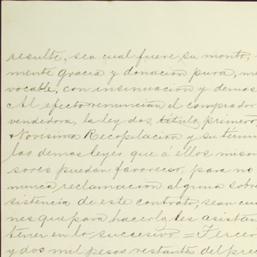 resulte, sea cual fuere su monto,
mente gracia y donacion pura, me
vocable, con insinuacion y demas
Al efecto renuncian el comprador
vendedora, la ley dos, título primero,
Novisima Recopilacion y su termi
las demas leyes que á ellos mismos
sores puedan favorecer, para no
nunca reclamacion alguna sobre
sistencia de este contrato, sean cua
nes que para hacerlo les asistan
tener en lo sucesivo = Tercero
y dos mil pesos restantes del prec